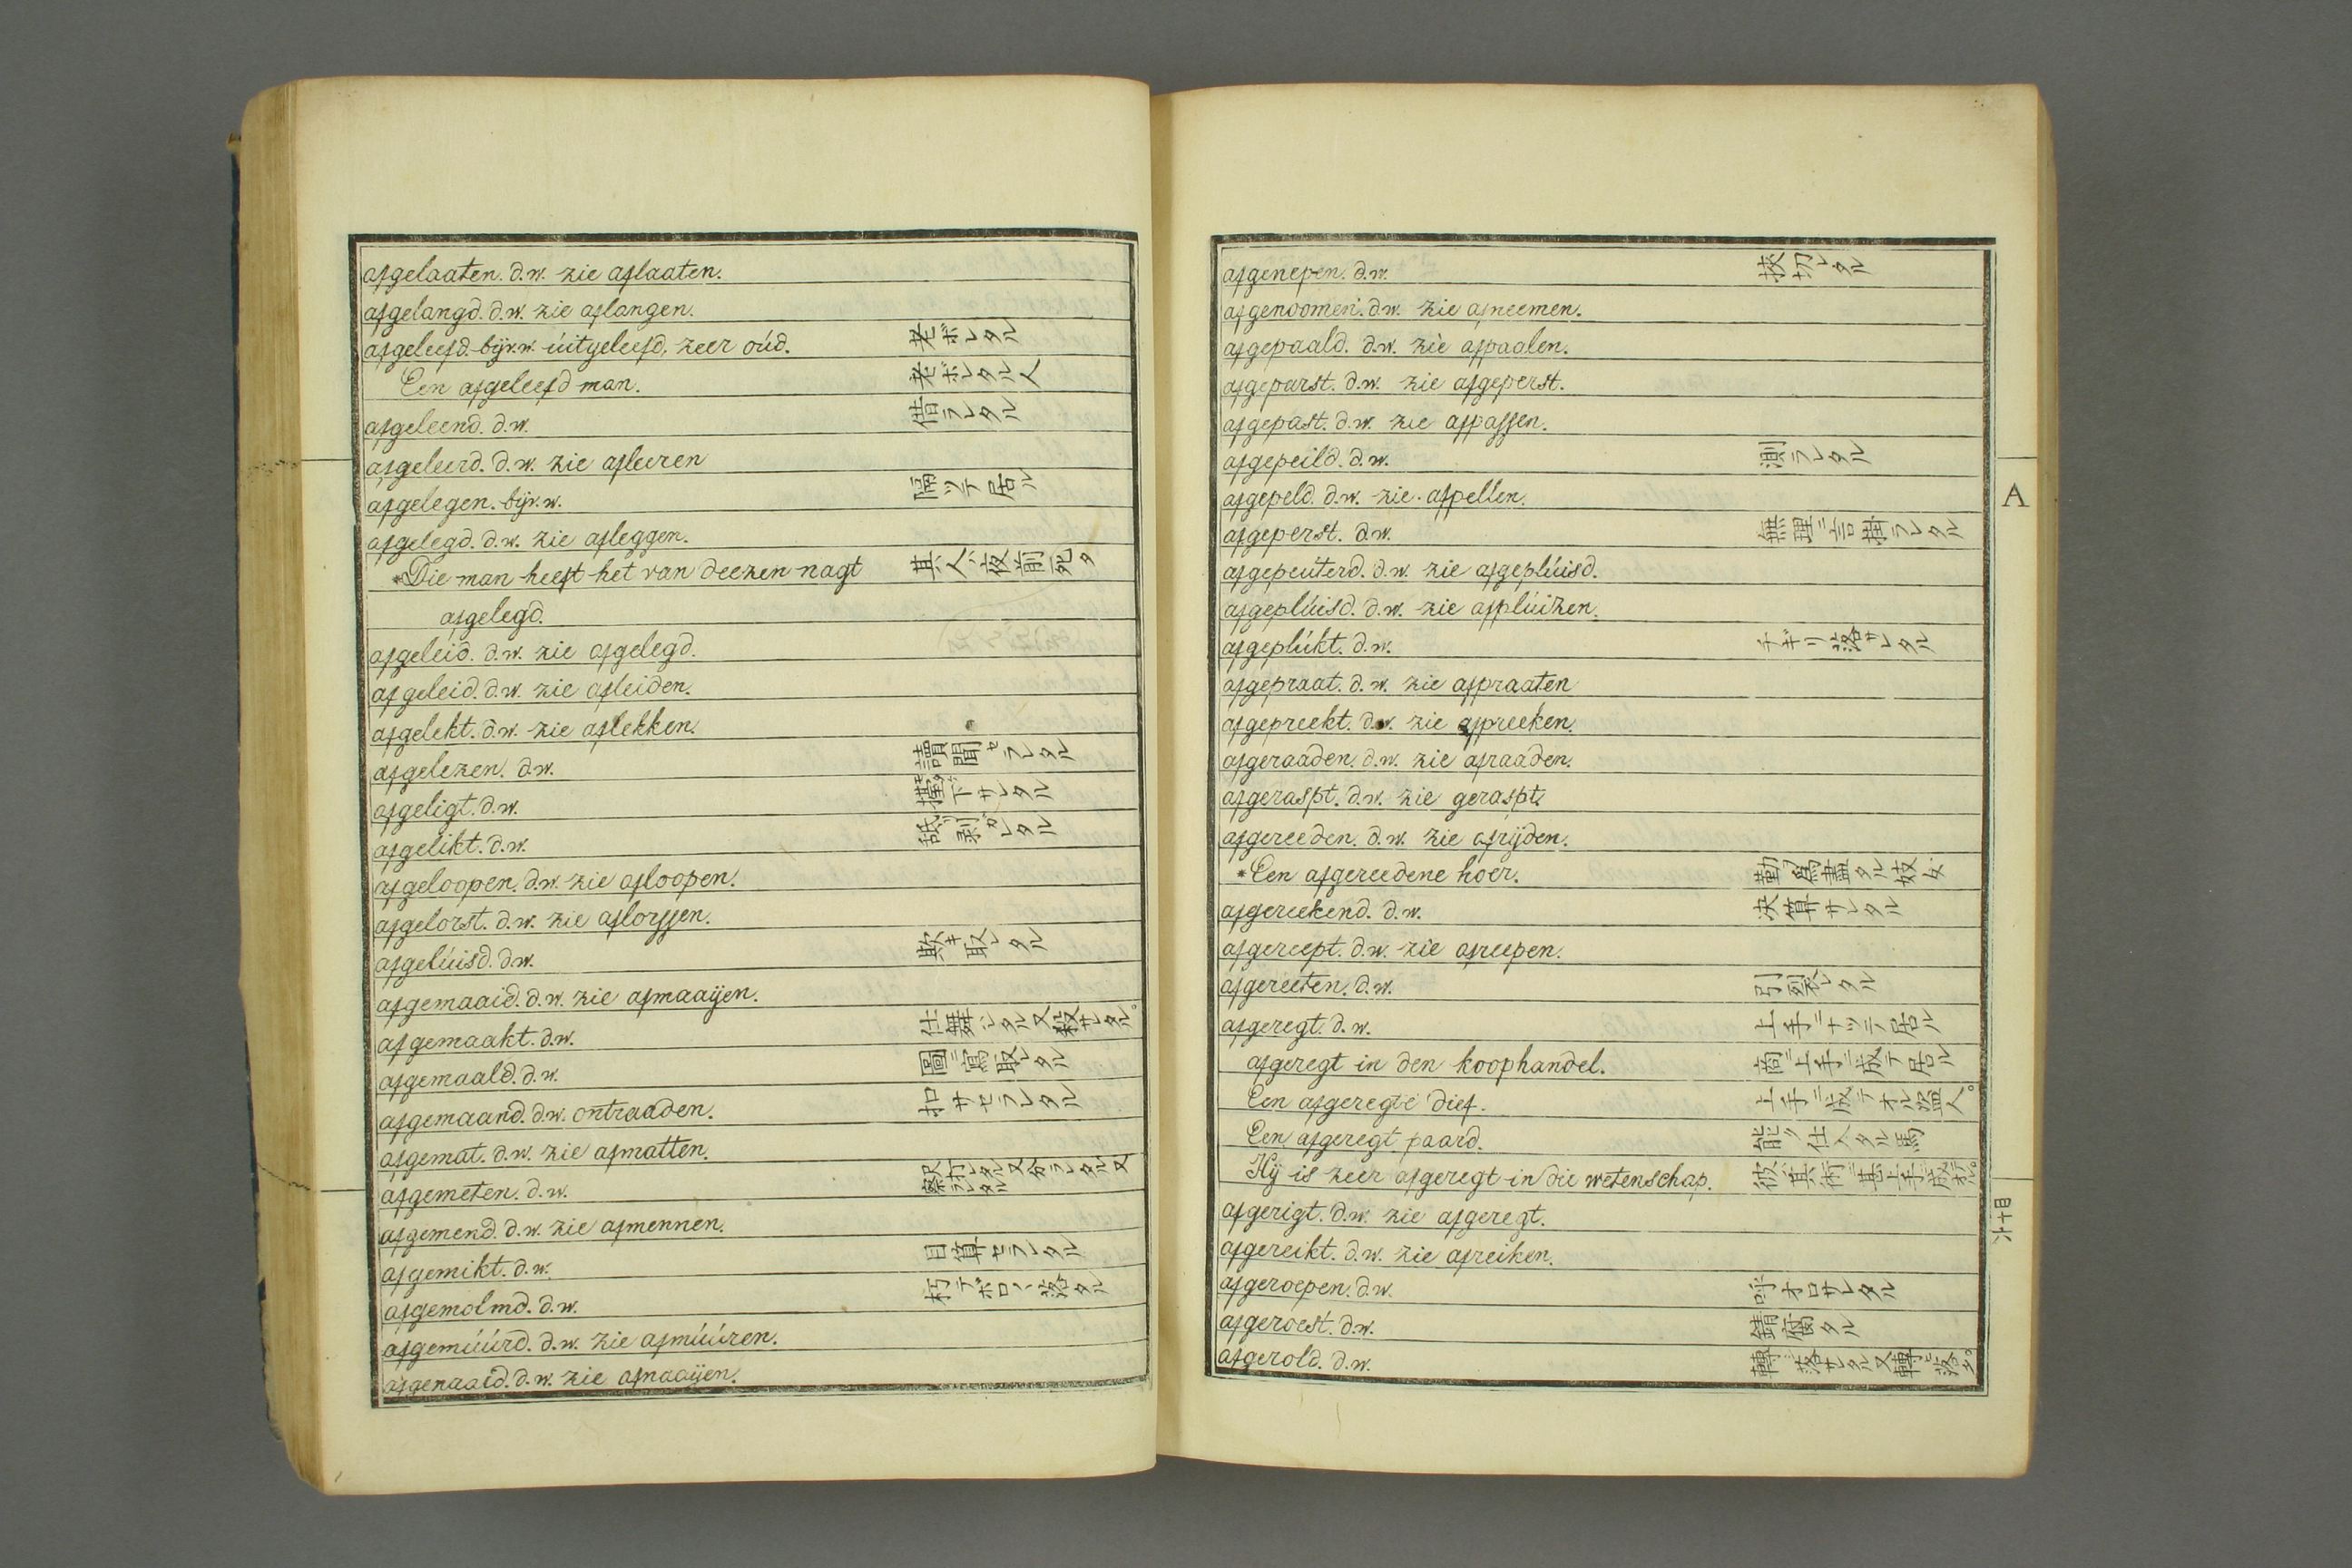 afgelaaten. d.w. zie aflaaten.
afgelangd. d.w. zie aflangen.
afgeleefd. bijv.w. úitgeleefd, zeer oúd. 老ボレタル
Een afgeleefd man. 老ボレタル人
afgeleend. d.w. 借ラレタル
afgeleerd. d.w. zie afleeren
afgelegen. bijv.w. 隔ツテ居ル
afgelegd. d.w. zie afleggen.
*Die man heeft het van deezen nagt 其人ハ夜前死タ
afgelegd.
afgeleid. d.w. zie afgelegd.
afgeleid. d.w. zie afleiden.
afgelekt. d.w. zie aflekken.
afgelezen. d.w. 讀聞セラレタル
afgeligt. d.w. 下サレタル
afgelikt. d.w. 舐剥ガレタル
afgeloopen. d.w. zie afloopen.
afgelorst. d.w. zie aflorssen.
afgelúisd. d.w. 欺キ取レタル
afgemaaid. d.w. zie afmaaijen.
afgemaakt. d.w. 仕舞レタル又殺サレタル。
afgemaald. d.w. 圖ニ寫取レタル
afgemaand. d.w. ontraaden. 扣サセラレタル
afgemat. d.w. zie afmatten.
afgemeten. d.w.
afgemend. d.w. zie afmennen.
afgemikt. d.w. 目算セラレタル
afgemolmd. d.w. 朽テボロ〱落タル
afgemúúrd. d.w. zie afmúúren.
afgenaaid. d.w. zie afnaaijen.
afgenepen. d.w. 挾切レタル
afgenoomen. d.w. zie afneemen.
afgepaald. d.w. zie afpaalen.
afgeparst. d.w. zie afgeperst.
afgepast. d.w. zie afpassen.
afgepeild. d.w. 測ラレタル
afgepeld. d.w. zie afpellen.
afgeperst. d.w. 無理ニ言掛ラレタル
afgepeúterd. d.w. zie afgeplúisd.
afgeplúisd. d.w. zie afplúizen.
afgeplúkt. d.w. チギリ落サレタル
afgepraat. d.w. zie afpraaten
afgepreekt. d.w. zie afpreeken.
afgeraaden. d.w. zie afraaden.
afgeraspt. d.w. zie geraspt.
afgereeden. d.w. zie afrijden.
*Een afgereedene hoer. 勤メ爲盡タル妓女
afgereekend. d.w. 決算サレタル
afgereept. d.w. zie afreepen.
afgereeten. d.w. 引裂レタル
afgeregt. d.w. 上手ニナツテ居ル
afgeregt in den koophandel. 商ニ上手ニ成テ居ル
Een afgeregte dief. 上手ニ成テオル盗人。
Een afgeregt paard. 能ク仕入タル馬
Hij is zeer afgeregt in die wetenschap. 彼ハ其術ニ甚上手ニ成テオル。
afgerigt. d.w. zie afgeregt.
afgereikt. d.w. zie afreiken.
afgeroepen. d.w. 呼オロサレタル
afgeroest. d.w. 錆腐タル
afgerold. d.w. 轉落サレタル又轉ビ落タ。
A